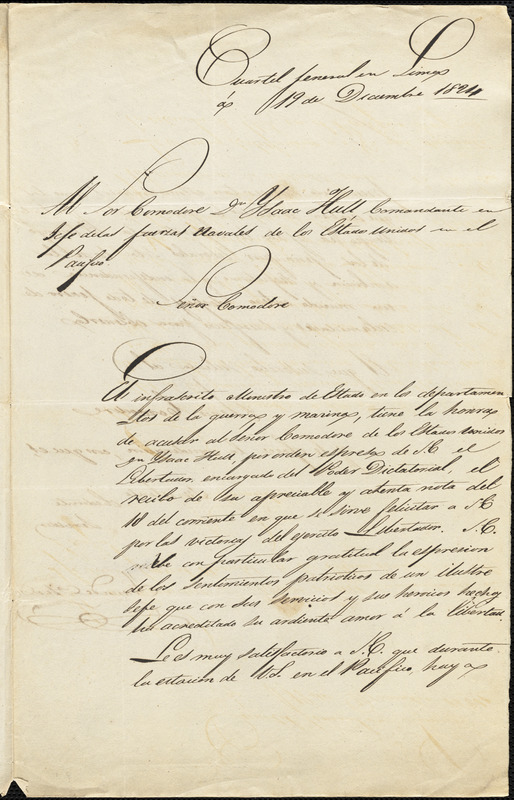 Cuartel general en Lima
á 19 de Diciembre 1824
Al Sor Comodore Dn Ysaac Hull Comandante en
Jefe de las fuerzas navales de los Estados Unidos en el
Pacifico
Señor Comodore
El infrascrito Ministro de Estado en los departamen
tos de la guerra y marina, tiene la honra
de acusar al Señor Comodore de los Estados Unidos
Dn Ysaac Hull por orden espresa de S.E. el
Libertador, encargado del Poder Dictatorial, el
recibo de su apreciable y atenta nota del
10 del corriente en que se sirve felicitar a S.E.
por las victorias del ejercito Libertador. S.E.
recibe con particular gratitud la espresion
de los sentimientos patrioticos de un ilustre
Jefe que con sus servicios y sus heroicos hechos
ha acreditado su ardiente amor á la libertad.
Le es muy satisfactorio a S.E. que durante
la estacion de V.S. en el Pacifico, haya